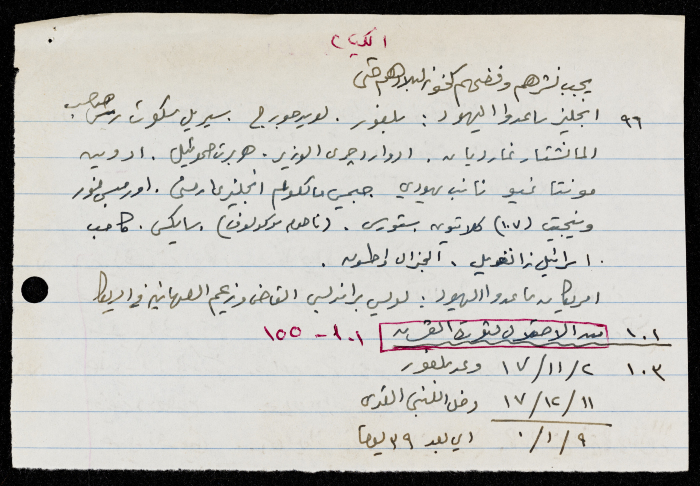 الكتاب
يجب نشرهم وفضحهم كخونة لبلادهم حتى
٩٦ انجليز ساعدوا اليهود : بلفور . لويد جورج . سيريل سكوت صاحب
المانشستر غارديان . ادوارد جري الوزير . هربرت صموئيل . ادوين
مونتاغيو نائب يهودي جيمس مالكولم انجليزي ارمني . اورمسبي غور
(١٠٧) كلايتون . (ناحوم سوكولوف) . سايكس . كاتب
اسرائيل زانغويل . الجنرال .
امريكان ساعدوا اليهود : لويس براندايس القاضي وزعيم الصهاينة في امريكا
١٠١ من الاحتلال ١٠١ - ١٥٥
١٠٣ ١٧/١١/٢ وعد بلفور
١٧/١٢/١١ دخل اللنبي القدس
٠/١/٩ اي بعد ٣٩ يوما